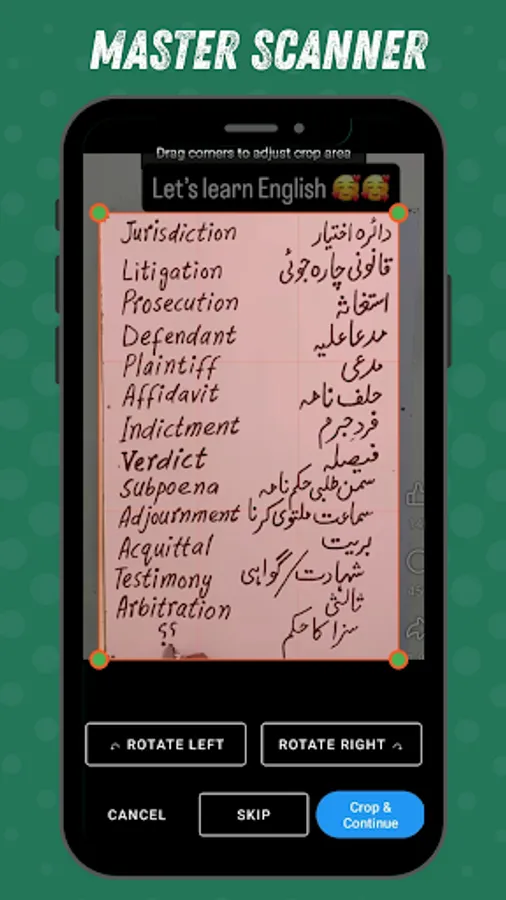 MASTER SCANNER
Drag corners to adjust crop area
Let's learn English 🥰🥰
Jurisdiction دائرہ اختیار
Litigation قانونی چارہ جوئی
Prosecution استغاثہ
Defendant مدعا علیہ
Plaintiff مدعی
Affidavit حلف نامہ
Indictment فردِ جرم
Verdict فیصلہ
Subpoena سمن طلبی حکم نامہ
Adjournment سماعت ملتوی کرنا
Acquittal بریت
Testimony شہادت/گواہی
Arbitration ثالثی
؟؟ سزا کا حکم
ROTATE LEFT
ROTATE RIGHT
CANCEL
SKIP
Crop &
Continue